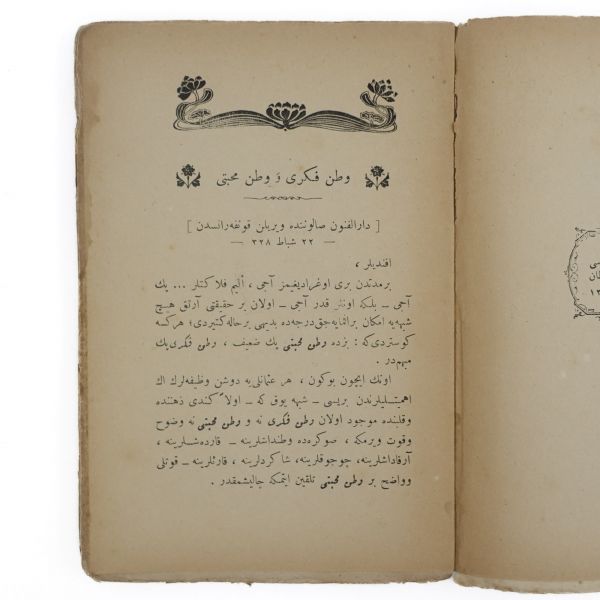 وطن فكرى و وطن محبتى
[ دارالفنون صالوننده ويريلن قونفه‌رانسدن ]
— ٢٢ شباط ٣٢٨ —
افنديلر ،
برمدتدن برى اوغراديغيمز آجى ، أليم فلاكتلر ... پك
آجى ــ بلكه اونلر قدر آجى ــ اولان بر حقيقتى آرتق هيچ
شبهه‌يه امكان براقمايه‌جق درجه‌ده بديهى بر حاله كتيردى ؛ هركسه
كوستردى كه : بزده وطن محبتى پك ضعيف ، وطن فكرى پك
مبهم در .
اونك ايچون بوكون ، هر عثمانلى‌يه دوشن وظيفه‌لرك اك
اهميتليلرندن بريسى ــ شبهه يوق كه ــ اولا كندى ذهننده
وقلبنده موجود اولان وطن فكرى نه و وطن محبتى نه وضوح
وقوت ويرمكه ، صوكره‌ده وطنداشلرينه ــ قارده‌شلرينه ،
آرقاداشلرينه ، چوجوقلرينه ، شاكردلرينه ، قارئلرينه ــ قوتلى
وواضح بر وطن محبتى تلقين ايتمكه چاليشمقدر .